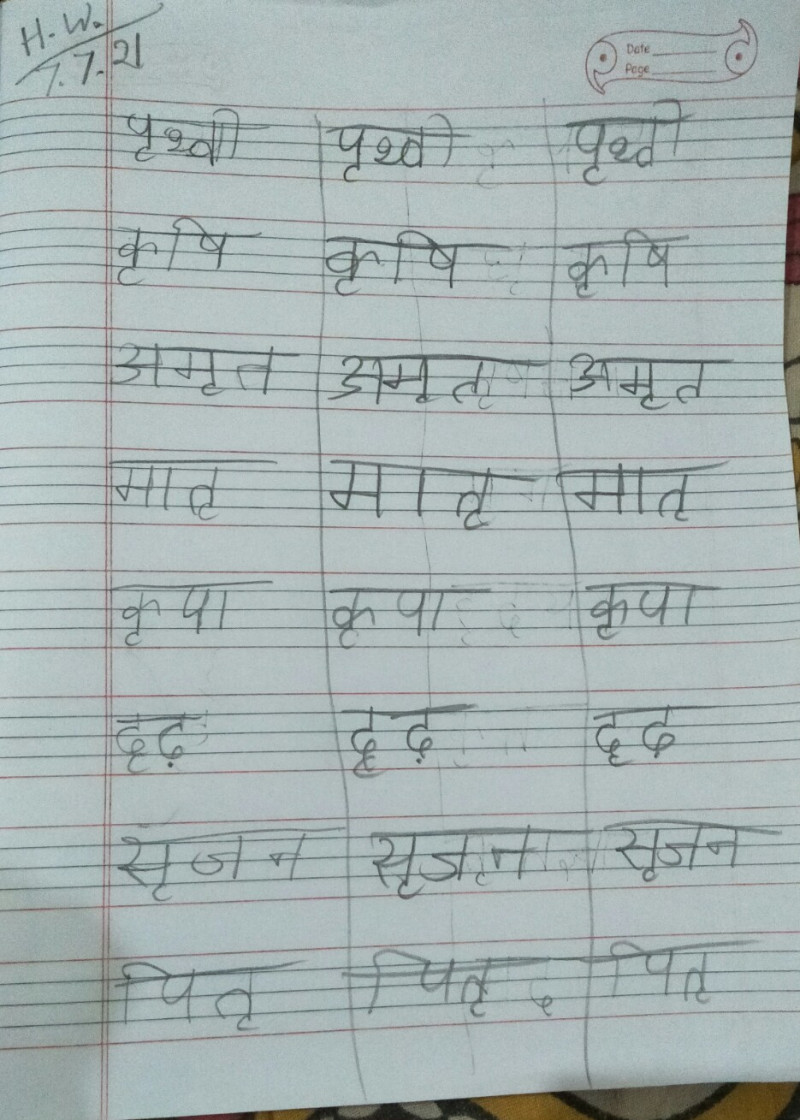 H.W.
7.7.21
Date
Page
पृथ्वी पृथ्वी पृथ्वी
कृषि कृषि कृषि
अमृत अमृत अमृत
मातृ मातृ मातृ
कृपा कृपा कृपा
दृढ़ दृढ़ दृढ
सृजन सृजन सृजन
पितृ पितृ पितृ